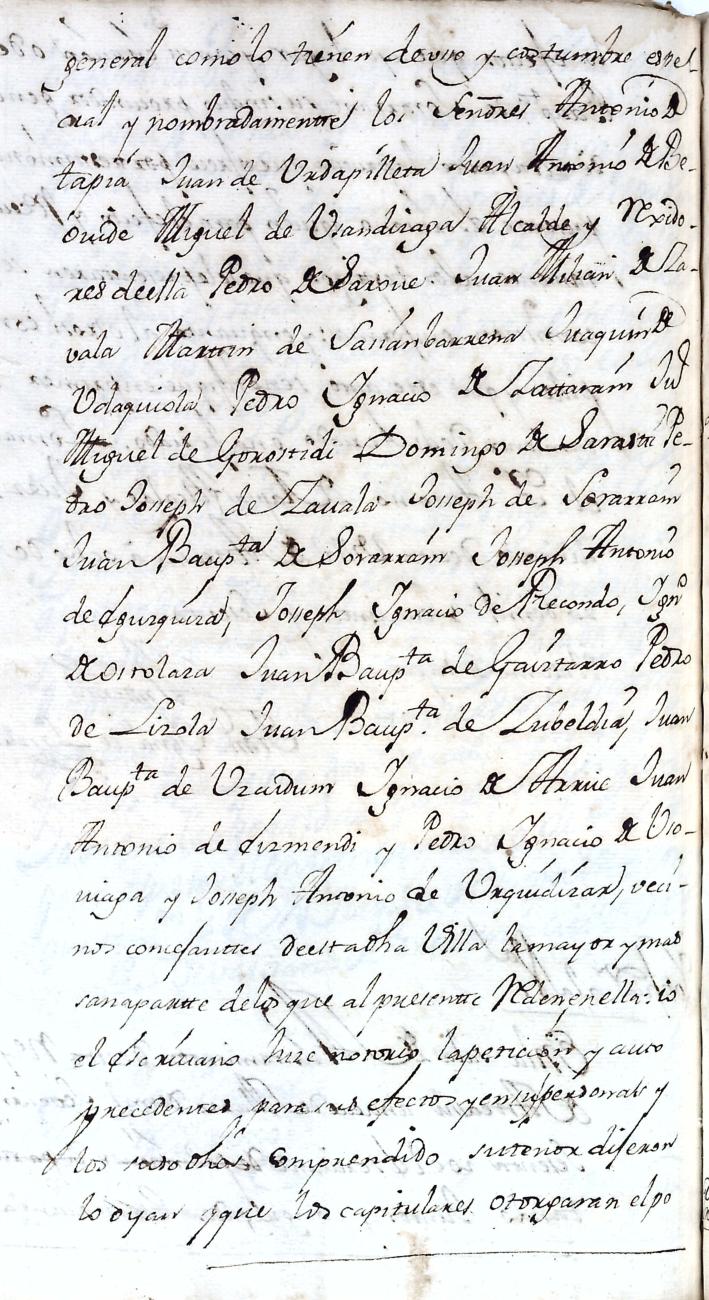 general como lo tienen de uso y costumbre espe
cial y nombradamentte los Señores Antonio de
tapia Juan de Urdapilleta Juan Antonio de Be-
ovide Miguel de Usandizaga Alcalde y Rexido-
res deella Pedro de Sarove Juan Milian de Za-
vala Marttin de Sasianbarrena Juaquin de
Udaquiola Pedro Ignacio de Zattarain Jn
Miguel de Gorostidi Domingo de Sarastti Pe-
dro Joseph de Zavala Joseph de Sorarrain
Juan Baupta de Sorarrain Joseph Antonio
de Eguzquiza, Josseph Ignacio de Recondo, Igno
de ostolaza Juan Baupta de Gaiztarro Pedro
de Lizola Juan Baupta de Zubeldia, Juan
Baupta de Ucaidum Ignacio de Arrue Juan
Antonio de Eizmendi y Pedro Ignacio de Uso-
viaga y Josseph Antonio de Urquidizar, veci-
nos concejanttes deesta dha Villa la mayor y mas
sana partte delos que al presentte Residen en ella: io
el Escrivano hize notorio la peticion y auto
precedentes para sus efectos y en sus personas y
los susodhos Comprendido su tenor dijeron
lo oyan y que los capitulares otorgaran el po